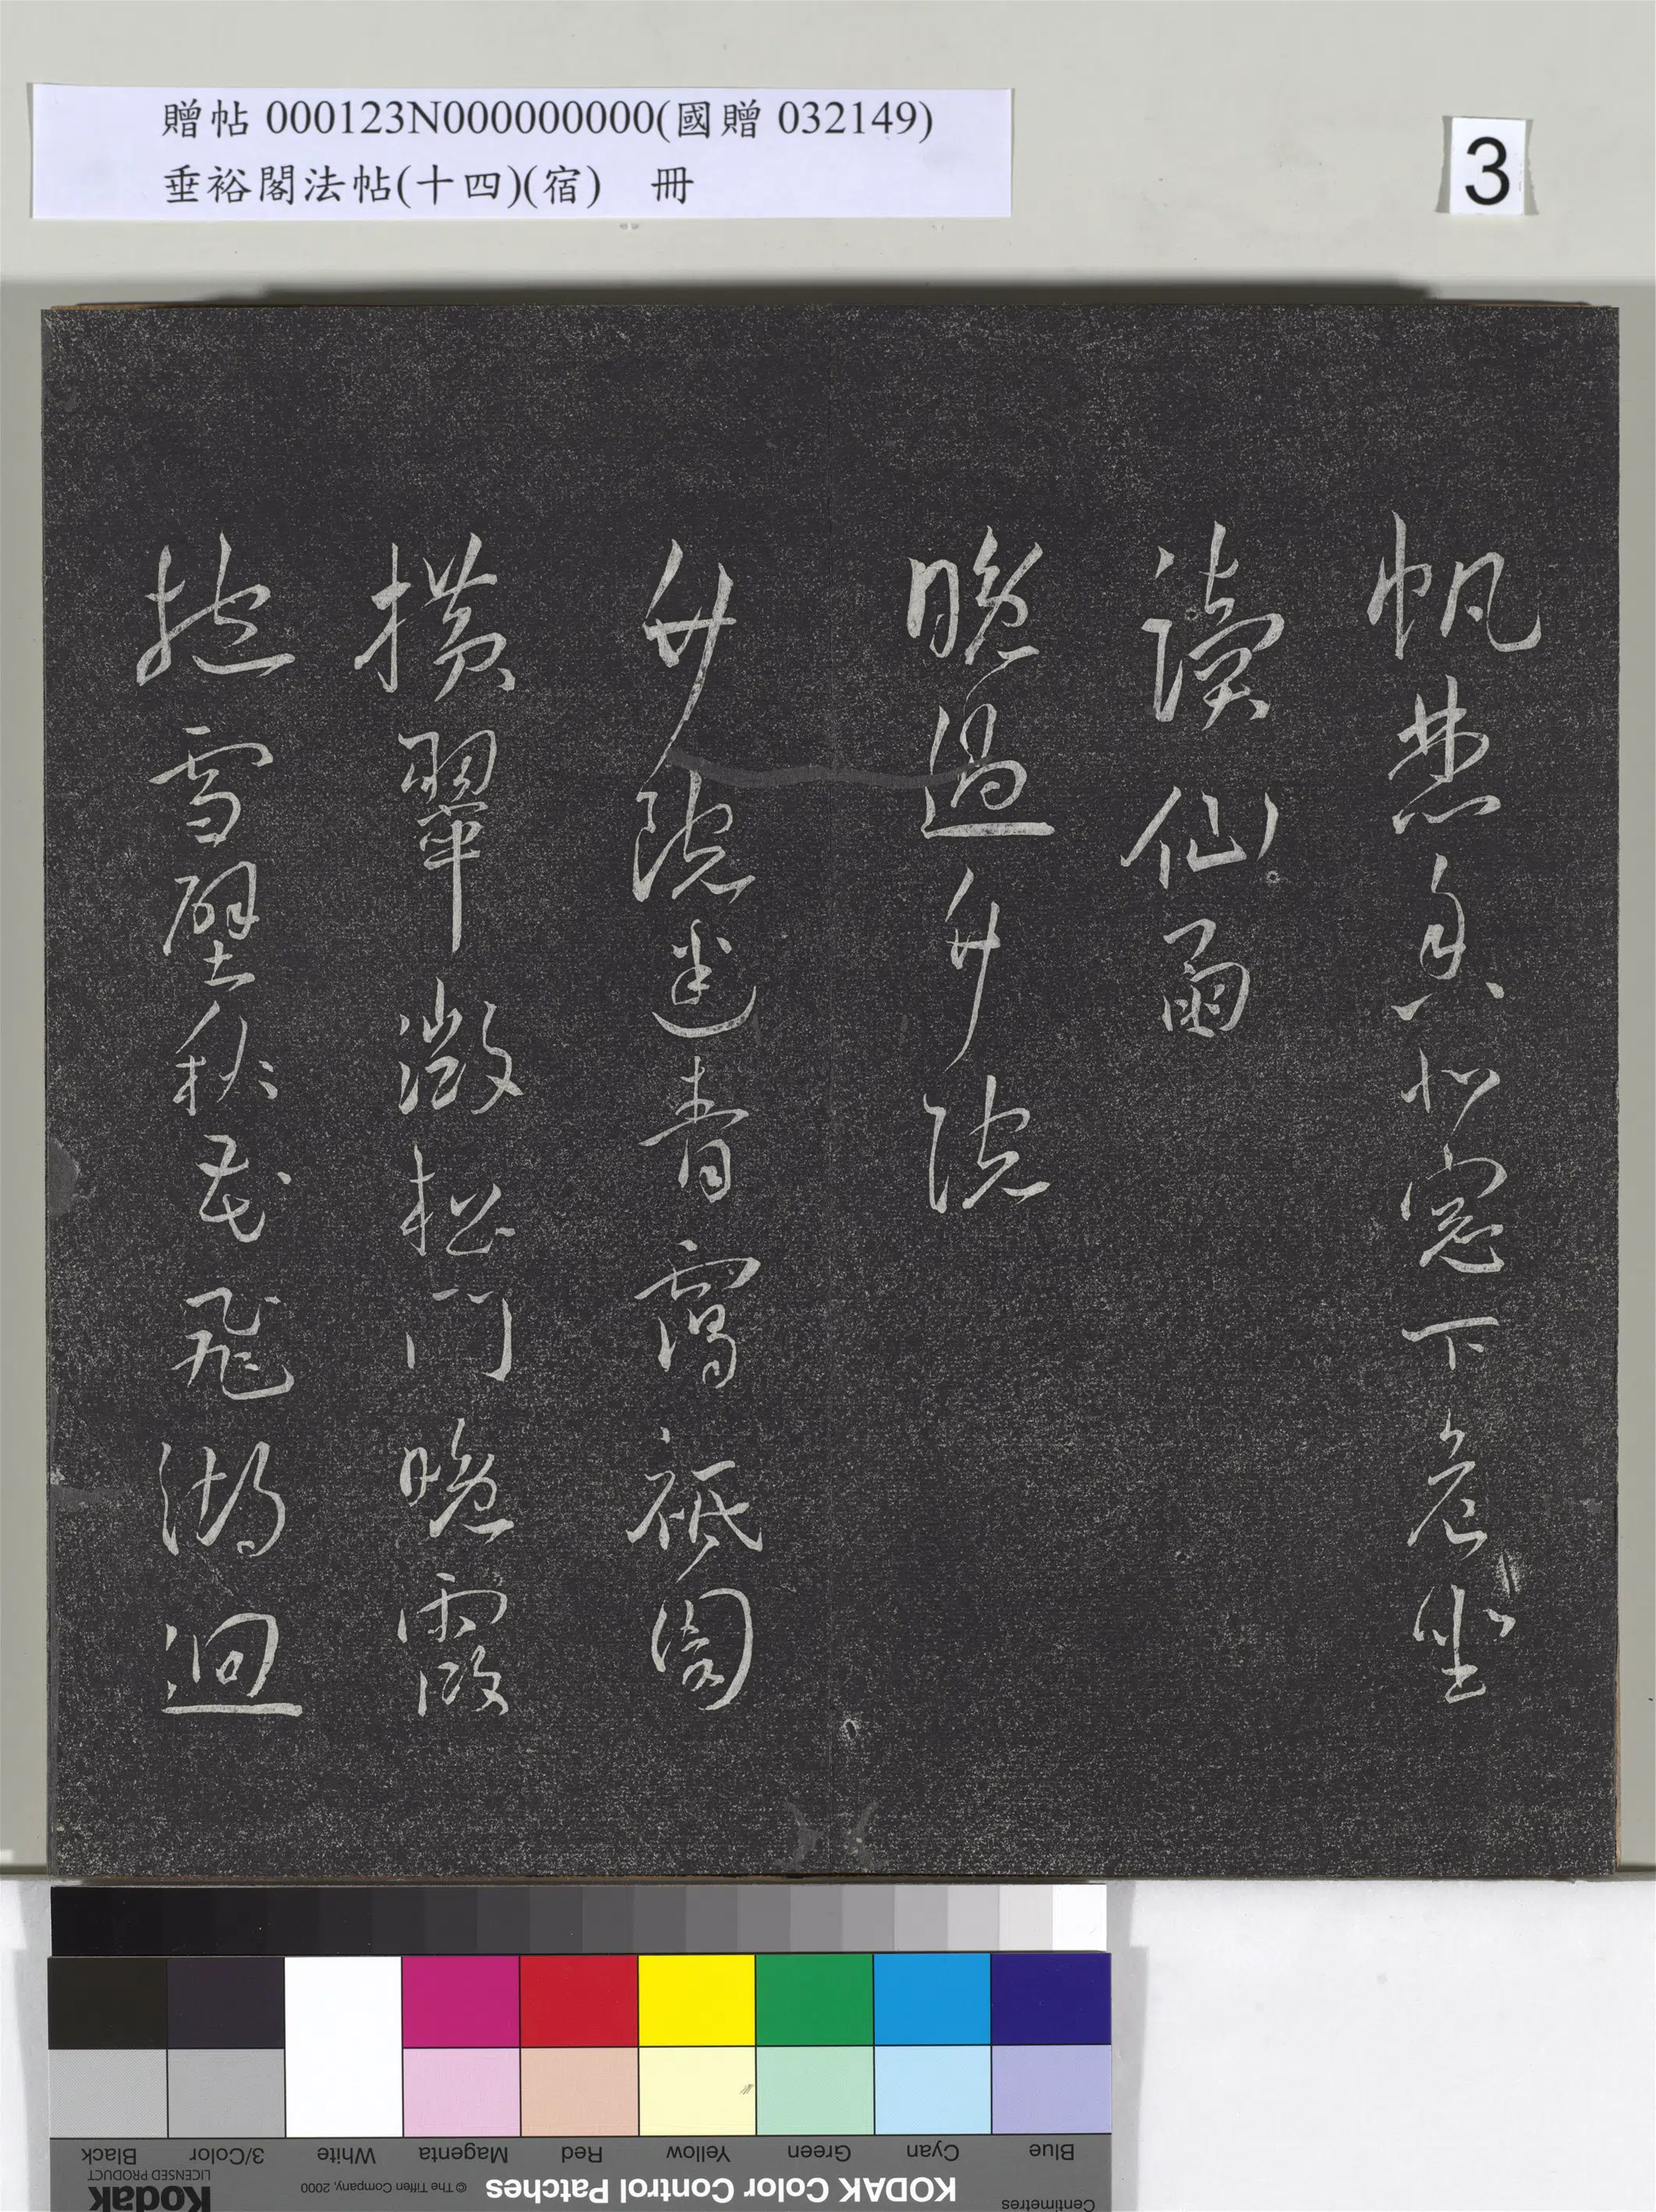 贈帖 000123N000000000(國贈 032149)
垂裕閣法帖(十四)(宿) 冊
3
帆焚香北窗下危坐
讀仙函
晚過升院
升院迷青靄祇園
橫翠微松門晚霞
掩雪壁秋花飛湖迴
Black 3/Color White Magenta Red Yellow Green Cyan Blue
Kodak
LICENSED PRODUCT
© The Tiffen Company, 2000
KODAK Color Control Patches
Centimetres